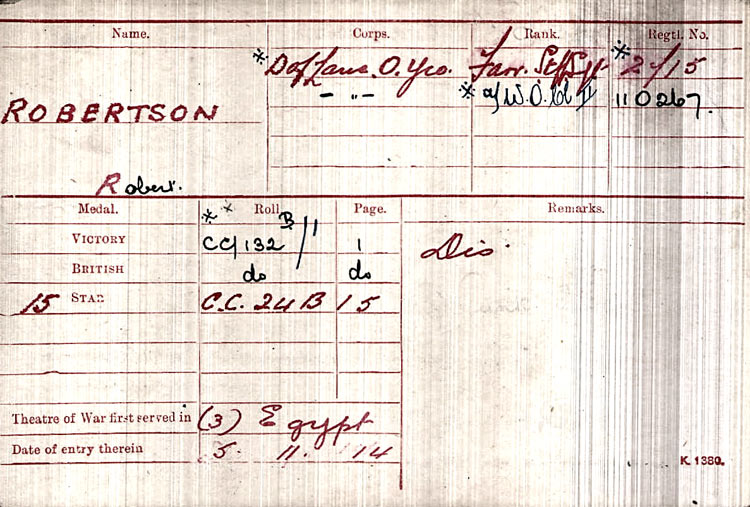 Name. Corps. Rank. Regtl. No.
* D of Lanc. O. Yeo. Farr. Stf Sjt * 2415
ROBERTSON — " — * a/ W.O. Cl II 110267.
Robert.
Medal. Roll. Page. Remarks.
VICTORY * x CC/132 B/11 1 Dis.
BRITISH do do
15 STAR C.C. 24 B 15
Theatre of War first served in (3) Egypt
Date of entry therein 5. 11. 14
K 1380.